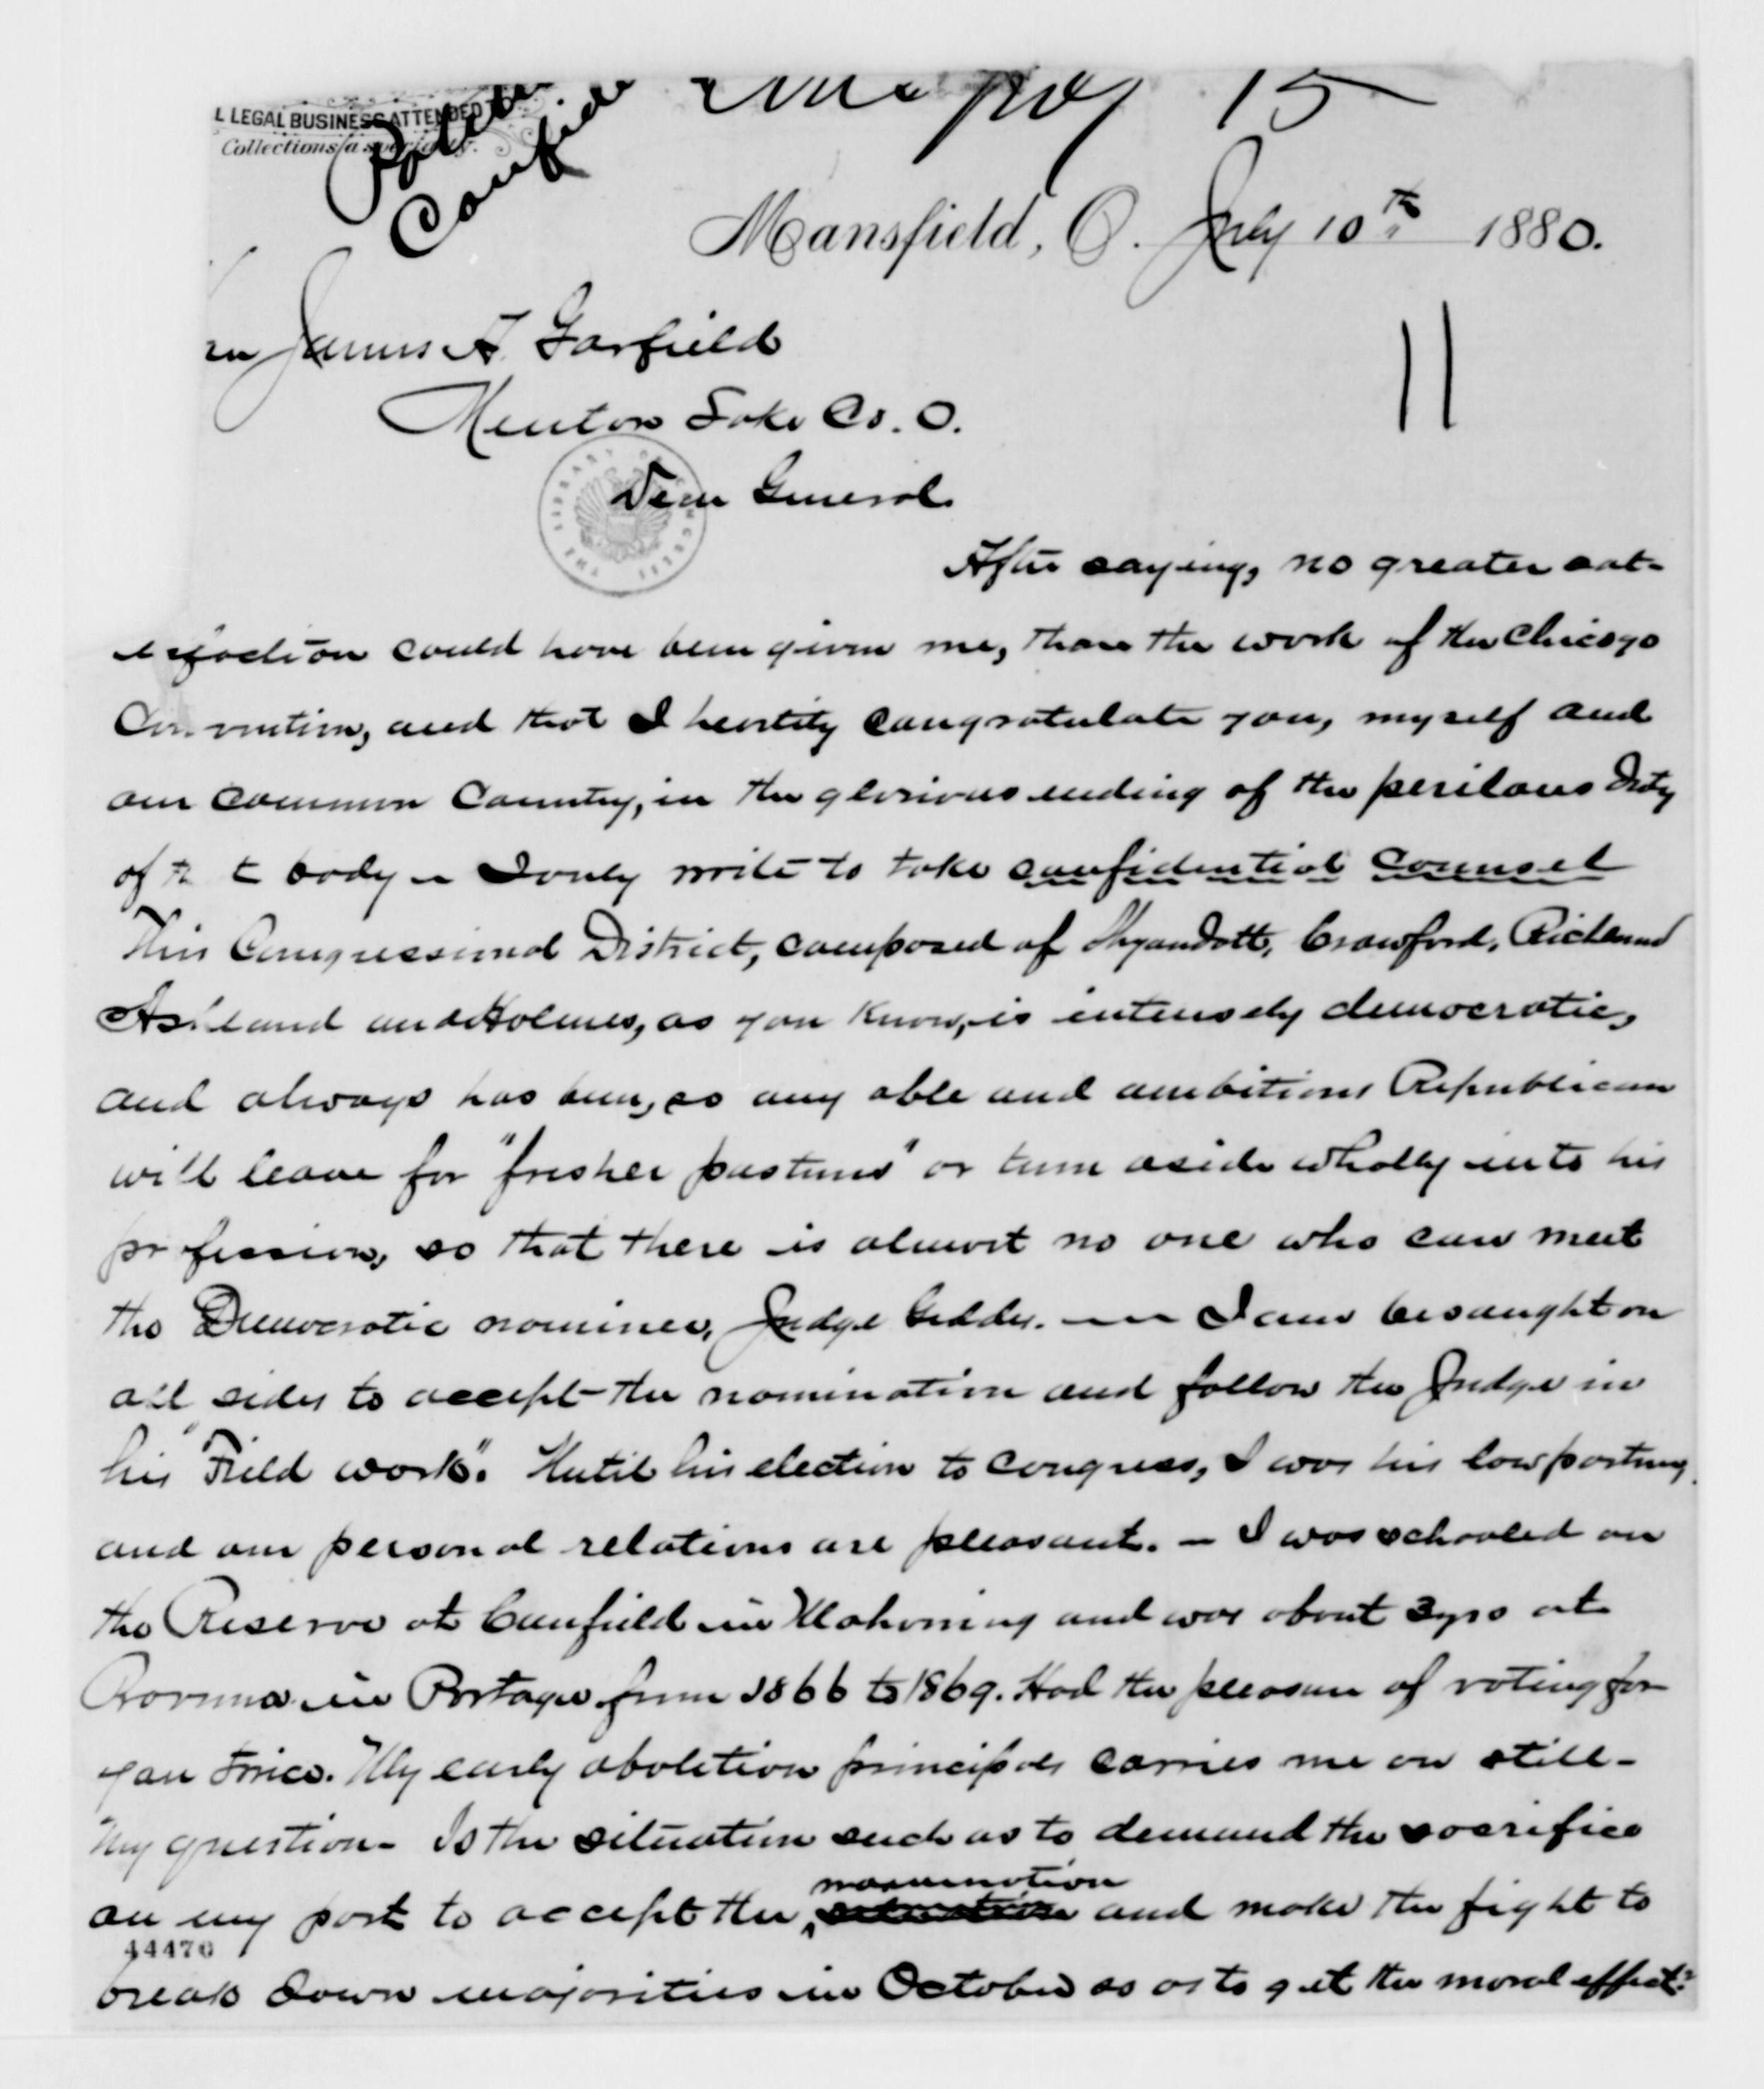 L LEGAL BUSINESS ATTENDED
Collections a specialty.
15
Mansfield, O. July 10th 1880.
James A. Garfield
Mentor Lake Co. O.
11
Dear General
After saying, no greater sat-
isfaction could have been given me, than the work of the Chicago
Convention, and that I heartily congratulate you, myself and
our common Country, in the glorious ending of the perilous duty
of body – I only write to take confidential counsel
This Congressional District, composed of Wyandott, Crawford, Richland
Ashland and Holmes, as you know, is intensely democratic,
and always has been, so any able and ambitious Republican
will leave for "fresher pastures" or turn aside wholly into his
profession, so that there is almost no one who can meet
the Democratic nominee, Judge Geddes. — I am besaught on
all sides to accept the nomination and follow the Judge in
his "Field work". Until his election to Congress, I was his law partner,
and our personal relations are pleasant. – I was schooled on
the Reserve at Canfield in Mahoning and was about 3 yrs at
Ravenna in Portage from 1866 to 1869. Had the pleasure of voting for
you twice. My early abolition principals carries me on still –
My question – Is the situation such as to demand the sacrifice
on my part to accept the nomination and make the fight to
44470
break down majorities in October so as to get the moral effect?